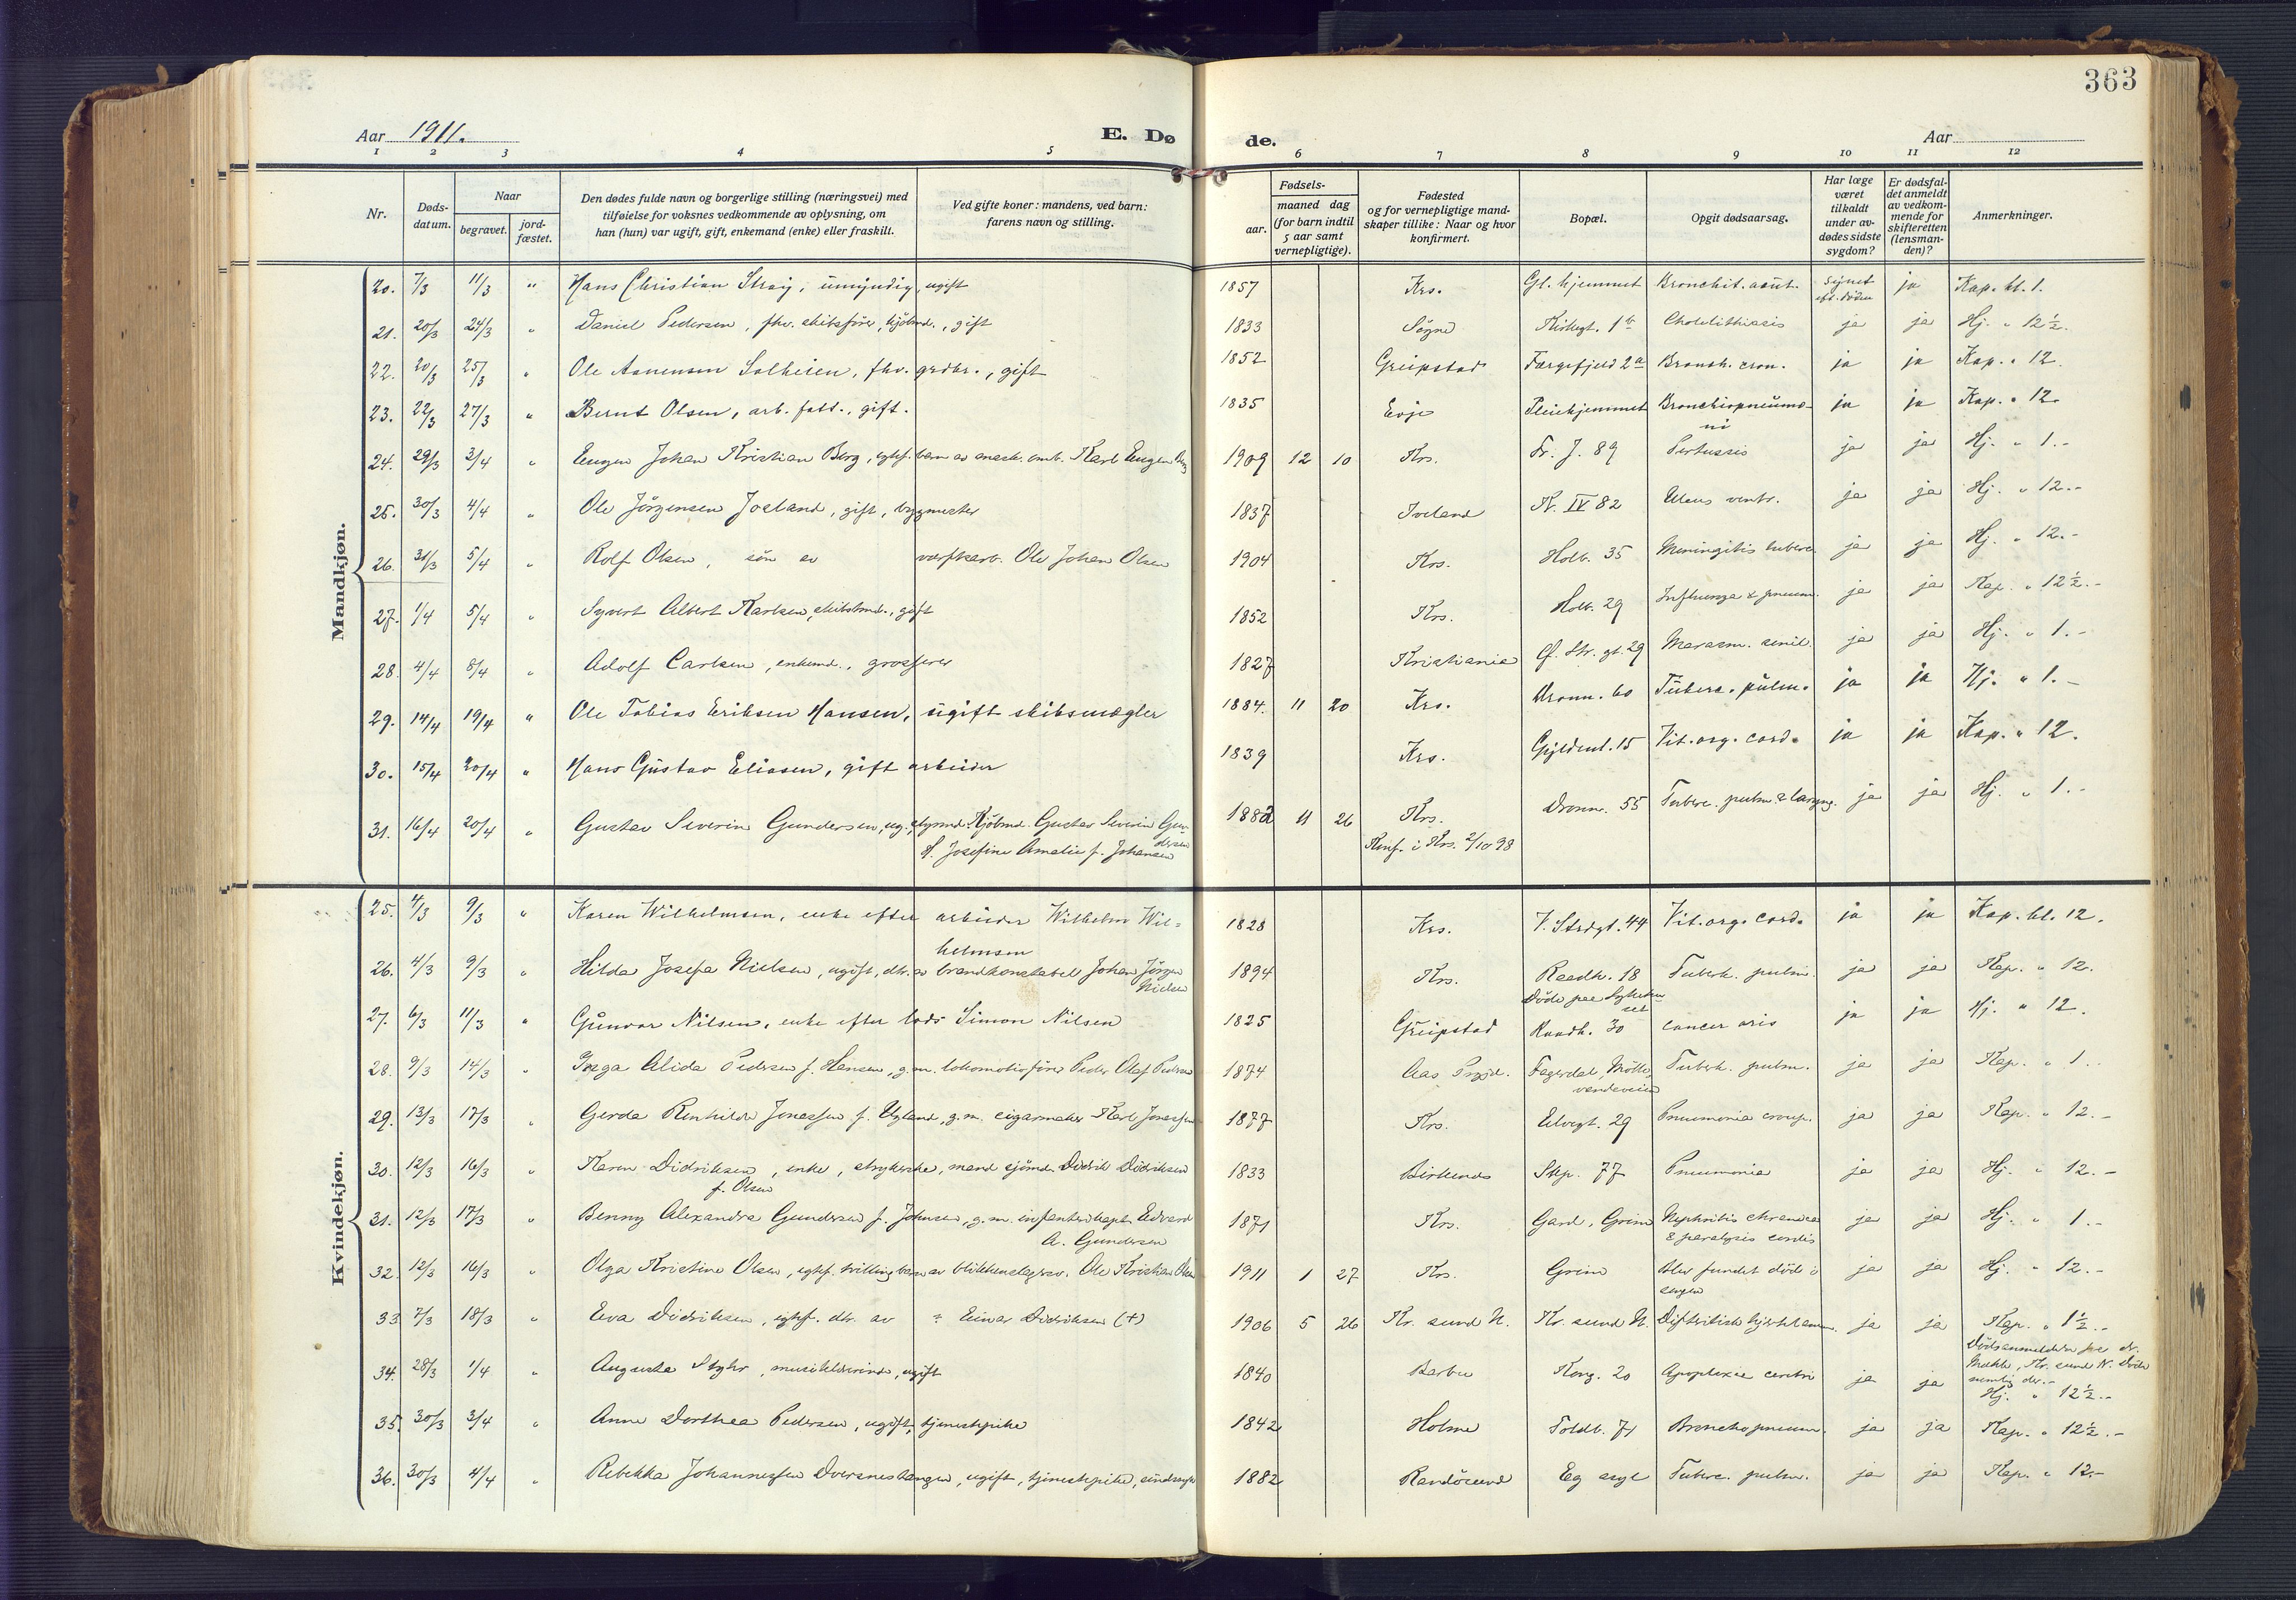 363
Aar 1911. E. Dø de. Aar
1 2 3 4 5 6 7 8 9 10 11 12
Nr. Døds-datum. Naar begravet. jord-fæstet. Den dødes fulde navn og borgerlige stilling (næringsvei) med tilføielse for voksnes vedkommende av oplysning, om han (hun) var ugift, gift, enkemand (enke) eller fraskilt. Ved gifte koner: mandens, ved barn: farens navn og stilling. Fødsels- aar. maaned dag (for barn indtil 5 aar samt vernepligtige). Fødested og for vernepligtige mand-skaper tillike: Naar og hvor konfirmert. Bopæl. Opgit dødsaarsag. Har læge været tilkaldt under av-dødes sidste sygdom? Er dødsfal-det anmeldt av vedkom-mende for skifteretten (lensman-den)? Anmerkninger.
Mandkjøn.
20. 7/3 11/3 " Hans Christian Straij, umyndig, ugift 1857 Krs. Gl. hjemmet Bronchit. acut. synet eft. døden ja Kap. kl. 1.
21. 20/3 24/3 " Daniel Pedersen, fhv. skibsfører, kjøbmd., gift 1833 Søgne Kirkegt. 1 b Cholelithiasis ja ja Hj. " 12 1/2.
22. 20/3 25/3 " Ole Aanensen Solheien, fhv. grdbr., gift 1852 Greipstad Færgefjeld 2 a Bronch. cron. ja ja Kap. " 12.
23. 22/3 27/3 " Bernt Olsen, arb. fatt., gift. 1835 Evje Pleiehjemmet Bronchiopneumo-ni ja ja Kap. " 12.
24. 29/3 3/4 " Eugen Johan Kristian Berg, egtef. barn av mask. arb. Karl Eugen Berg 1909 12 10 Krs. Fr. J. 89 Pertussis ja ja Hj. " 1.-
25. 30/3 4/4 " Ole Jörgensen Joeland, gift, bygmester 1837 Iveland K. IV 82 Ulcus ventr. ja ja Hj. " 12.-
26. 31/3 5/4 " Rolf Olsen, søn av værftsarb. Ole Johan Olsen 1904 Krs. Holb. 35 Meningitis tuberc. ja ja Hj. " 12.-
27. 1/4 5/4 " Syvert Albert Karlsen, skibstmd., gift 1852 Krs. Holb. 29 Influenza & pneum. ja ja Kap. " 12 1/2.-
28. 4/4 8/4 " Adolf Carlsen, enkemd., grosserer 1827 Kristiania Ø. Str. gt. 29 Marasm. senil. ja ja Hj. " 1.-
29. 14/4 19/4 " Ole Tobias Eriksen Hansen, ugift skibsmægler 1884. 11 20 Krs. Dronn. 60 Tuberc. pulm. ja ja Hj. " 1.-
30. 15/4 20/4 " Hans Gustav Eliasen, gift arbeider 1839 Krs. Gyldenl. 15 Vit. org. cord. ja ja Kap. " 12.
31. 16/4 20/4 " Gustav Severin Gundersen, ug. styrmd. Kjøbmd. Gustav Severin Gun-dersen 1882 11 26 Krs. Dronn. 55 Tuberc. pulm. & laryng. ja ja Hj. " 1.-
H. Josefine Amalie f. Johansen Konf. i Krs. 2/10 98
Kvindekjøn.
25. 4/3 9/3 " Karen Wilhelmsen, enke efter arbeider Wilhelm Wil=helmsen 1828 Krs. V. Strdgt. 44 Vit. org. cord. ja ja Kap. kl. 12.
26. 4/3 9/3 " Hilda Josefa Nielsen, ugift, dtr. av brandkonstabel Johan Jörgen Nielsen 1894 Krs. Raadh. 18 Tuberk. pulm. ja ja Kap. " 12.
Döde paa Sykehuset
27. 6/3 11/3 " Gunvor Nilsen, enke efter lods Simon Nilsen 1825 Greipstad Raadh. 30 cancer oris ja ja Hj. " 12.
28. 9/3 14/3 " Inga Alida Pedersen f. Hansen, g.m. lokomotivfører Peder Olaf Pedersen 1874 Aas Prgjd. Fagerdal, Møllevandsveien Tuberk. pulm. ja ja Kap. " 1.-
29. 13/3 17/3 " Gerda Renhilde Jonassen f. Ugland, g.m. cigarmaker Karl Jonassen 1877 Krs. Elvegt. 29 Pneumonia croup. ja ja Kap. " 12.-
30. 12/3 16/3 " Karen Didriksen, enke, strykerske, mand sjømd. Didrik Didriksen 1833 Birkenes Skp. 77 Pneumonia ja ja Hj. " 12.-
f. Olsen
31. 12/3 17/3 " Benny Alexandra Gundersen f. Johnsen, g.m. infanterikapt. Edvard A. Gundersen 1871 Krs. Gard, Grim Nephritis chronica & paralysis cordis ja ja Hj. " 1.-
32. 12/3 16/3 " Olga Kristine Olsen, egtef. tvillingbarn av blikkenslagersv. Ole Kristian Olsen 1911 1 27 Krs. Grim Blev fundet død i sengen ja ja Hj. " 12.-
33. 7/3 18/3 " Eva Didriksen, egtef. dtr. av Einar Didriksen (+) 1906 5 26 Kr. sund N. Kr. sund N. Difteritisk hjertelam. ja ja Kap. " 1 1/2.-
Dödsanmeldelse fra dr. Kr. sund N. Döde nemlig der.-
34. 28/3 1/4 " Augusta Styhr, musiklærerinde, ugift 1840 Barbu Kong. 20 Apoplexia cerebri ja ja Hj. " 12 1/2.-
35. 30/3 3/4 " Anne Dorthea Pedersen, ugift, tjenestpike 1842 Holme Toldb. 71 Bronchopneum. ja ja Kap. " 12 1/2.-
36. 30/3 4/4 " Rebekka Johannessen Dversnestangen, ugift, tjenestpike, sindssyk 1882 Randösund Eg asyl Tuberc. pulm. ja ja Kap. " 12.-